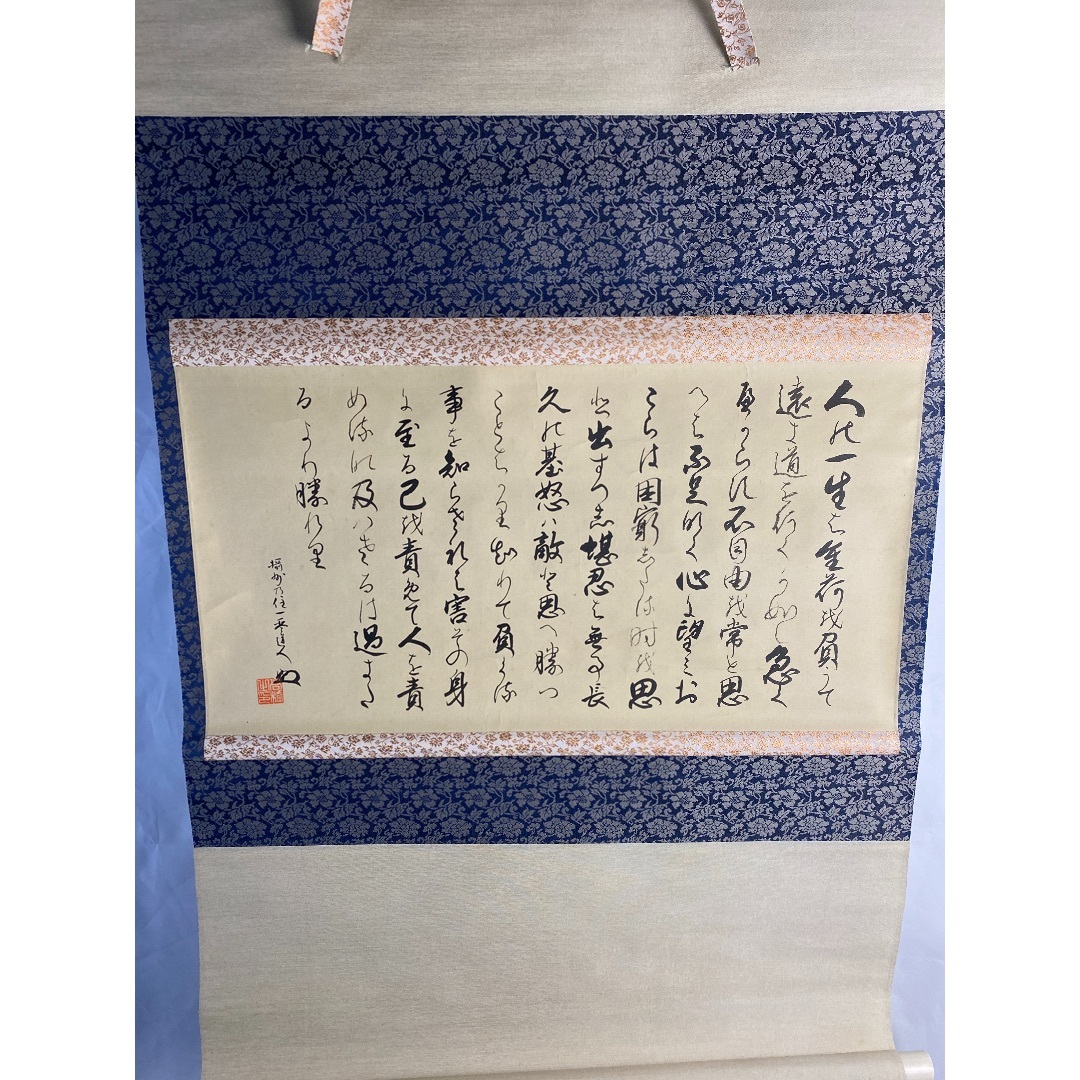 人の一生は重荷を負うて
遠き道を行くか如し急く
へからす不自由を常と思
へは不足なく心に望みお
こらは困窮したる時を思
ひ出すへし堪忍は無事長
久の基怒は敵と思へ勝つ
ことはかり知りて負くる
事を知らされは害其の身
に至る己を責めて人を責
めるな及はさるは過きた
るより勝れり
摂州乃住